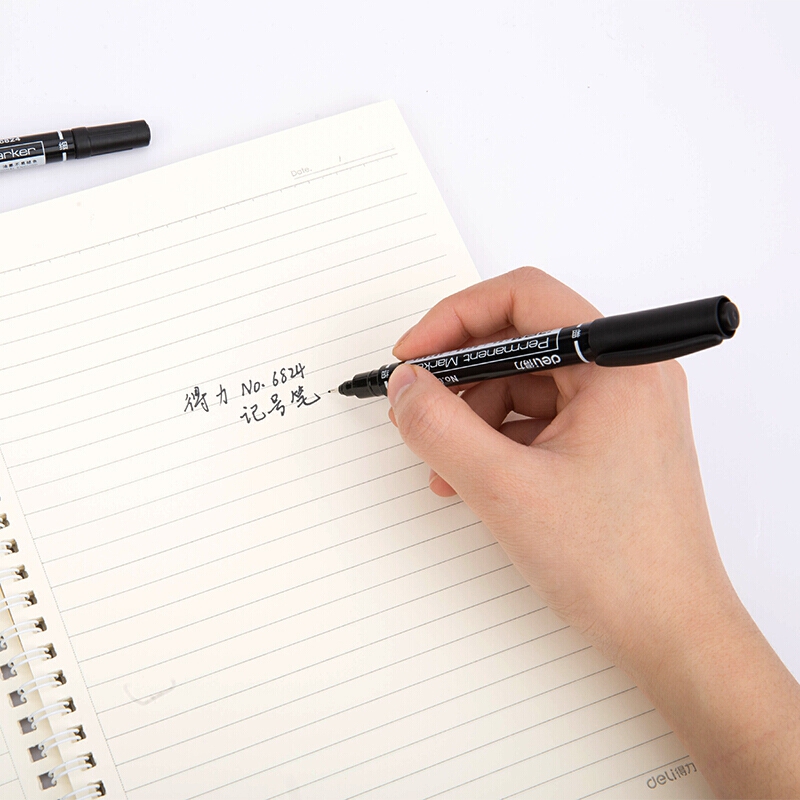 6824
arker
Date. /
得力 No. 6824
记号笔
Permanent Marke
deli得力
No.
deli得力